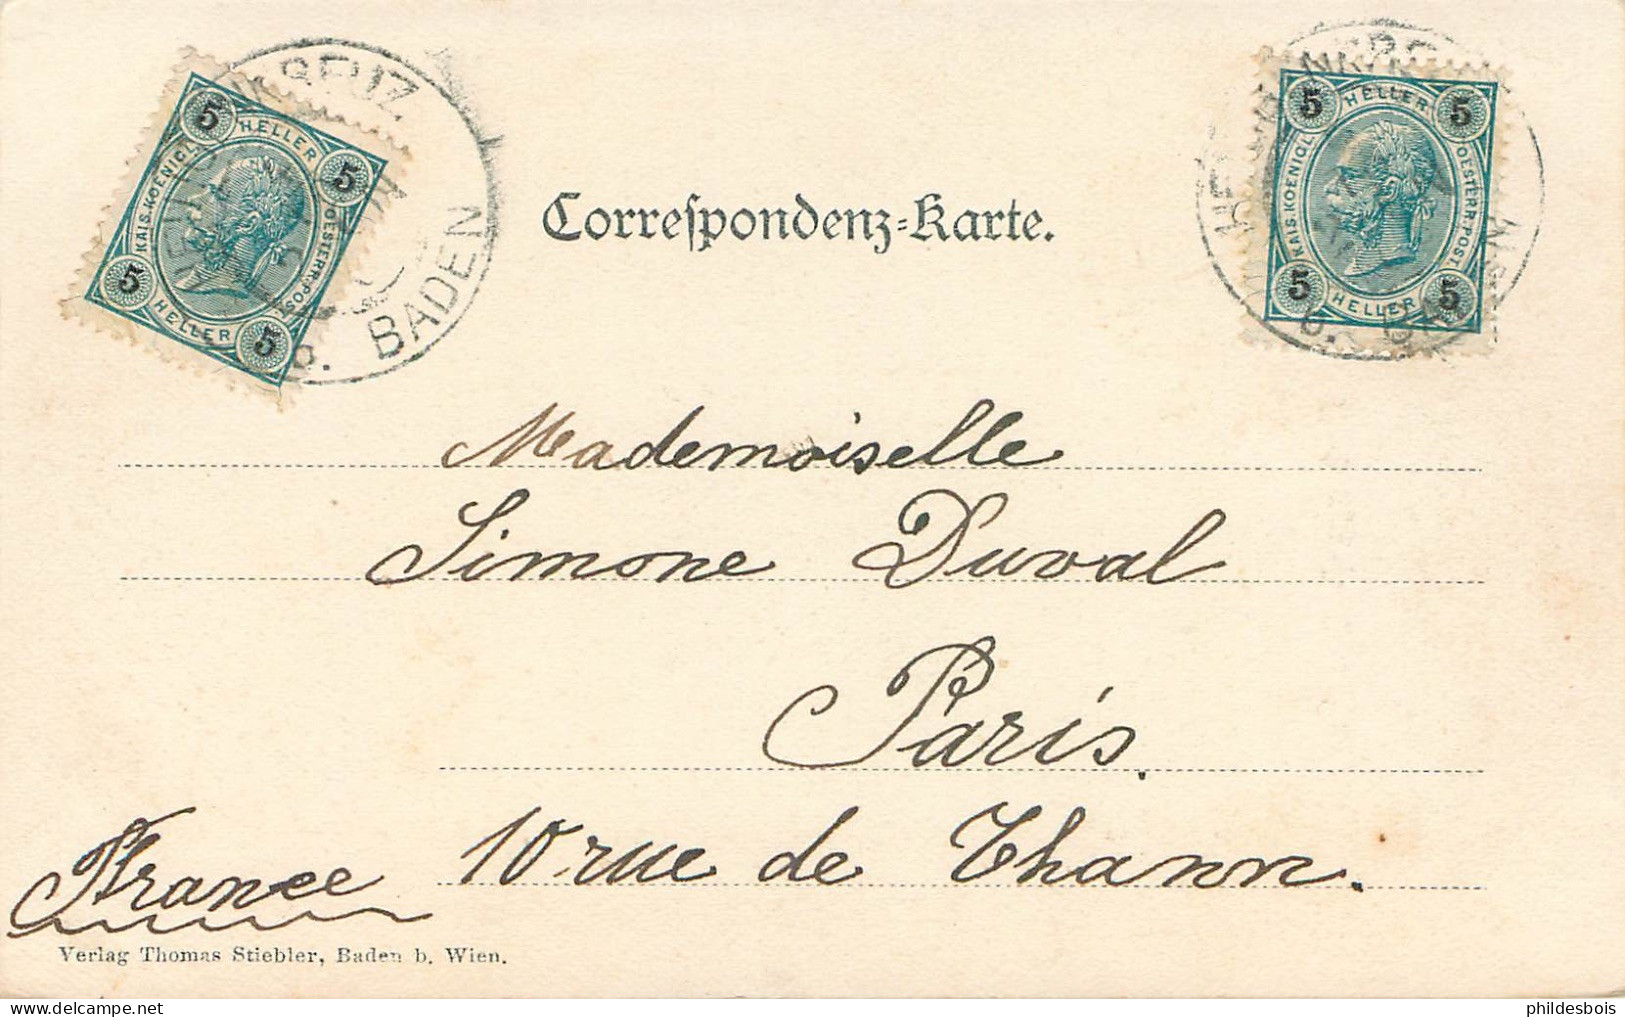 HEILIGENKREUZ
b. BADEN
5 HELLER 5
KAIS. KOENIGL. OESTERR. POST.
5 HELLER 5
5 HELLER 5
KAIS. KOENIGL. OESTERR. POST.
5 HELLER 5
Correſpondenz-Karte.
Mademoiselle
Simone Duval
Paris.
10 rue de Thann.
France
Verlag Thomas Stiebler, Baden b. Wien.
phildesbois